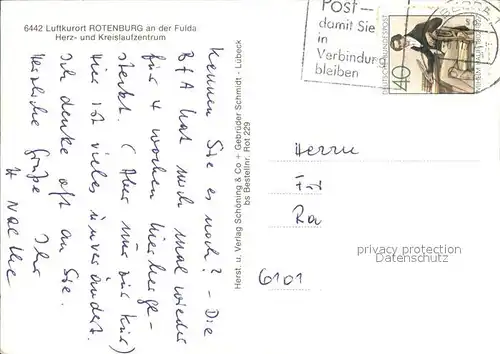 6442 Luftkurort ROTENBURG an der Fulda
Herz- und Kreislaufzentrum
Kennen Sie es noch? - Die
BfA hat mich mal wieder
für 4 Wochen hierherge-
steckt. (Aber nur zur Kur)
Hier ist vieles unverändert.
Ich denke oft an Sie.
Herzliche Grüße Ihr
Herst. u. Verlag Schöning & Co + Gebrüder Schmidt - Lübeck
bs Bestellnr. Rot 229
Post—
damit Sie
in
Verbindung
bleiben
DEUTSCHE BUNDESPOST
40
Herrn
Ra
6101
privacy protection
Datenschutz